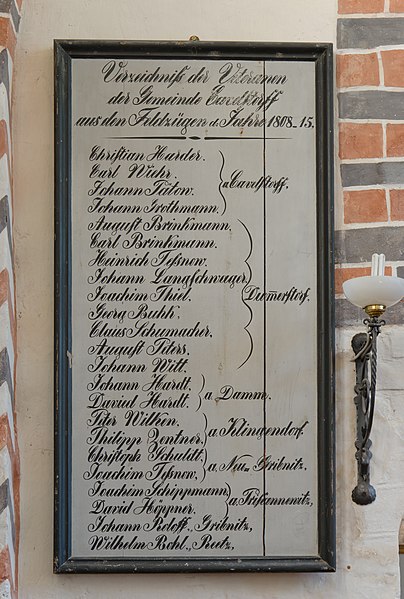 Verzeichniß der Veteranen
der Gemeinde Cavelstorff
aus den Feldzügen d. Jahre 1808-15.
Christian Harder.
Carl Wiehr.
Johann Tütow.
Johann Grothmann.
a. Cavelstorff.
August Brinkmann.
Carl Brinkmann.
Heinrich Teßnow.
Johann Langschwager
Joachim Thiel.
Georg Buhk.
Claus Schumacher.
August Peters.
Johann Witt.
Dum̅erstorf.
Johann Hardt.
David Hardt.
a. Damm.
Peter Wilken.
Philipp Zentner.
a. Klingendorf.
Christoph Schuldt.
Joachim Teßnow,
a. Neu= Gribnitz,
Joachim Schippmann
David Höppner.
a. Prisannewitz,
Johann Roloff., Gribnitz,
Wilhelm Bohl., Reetz,